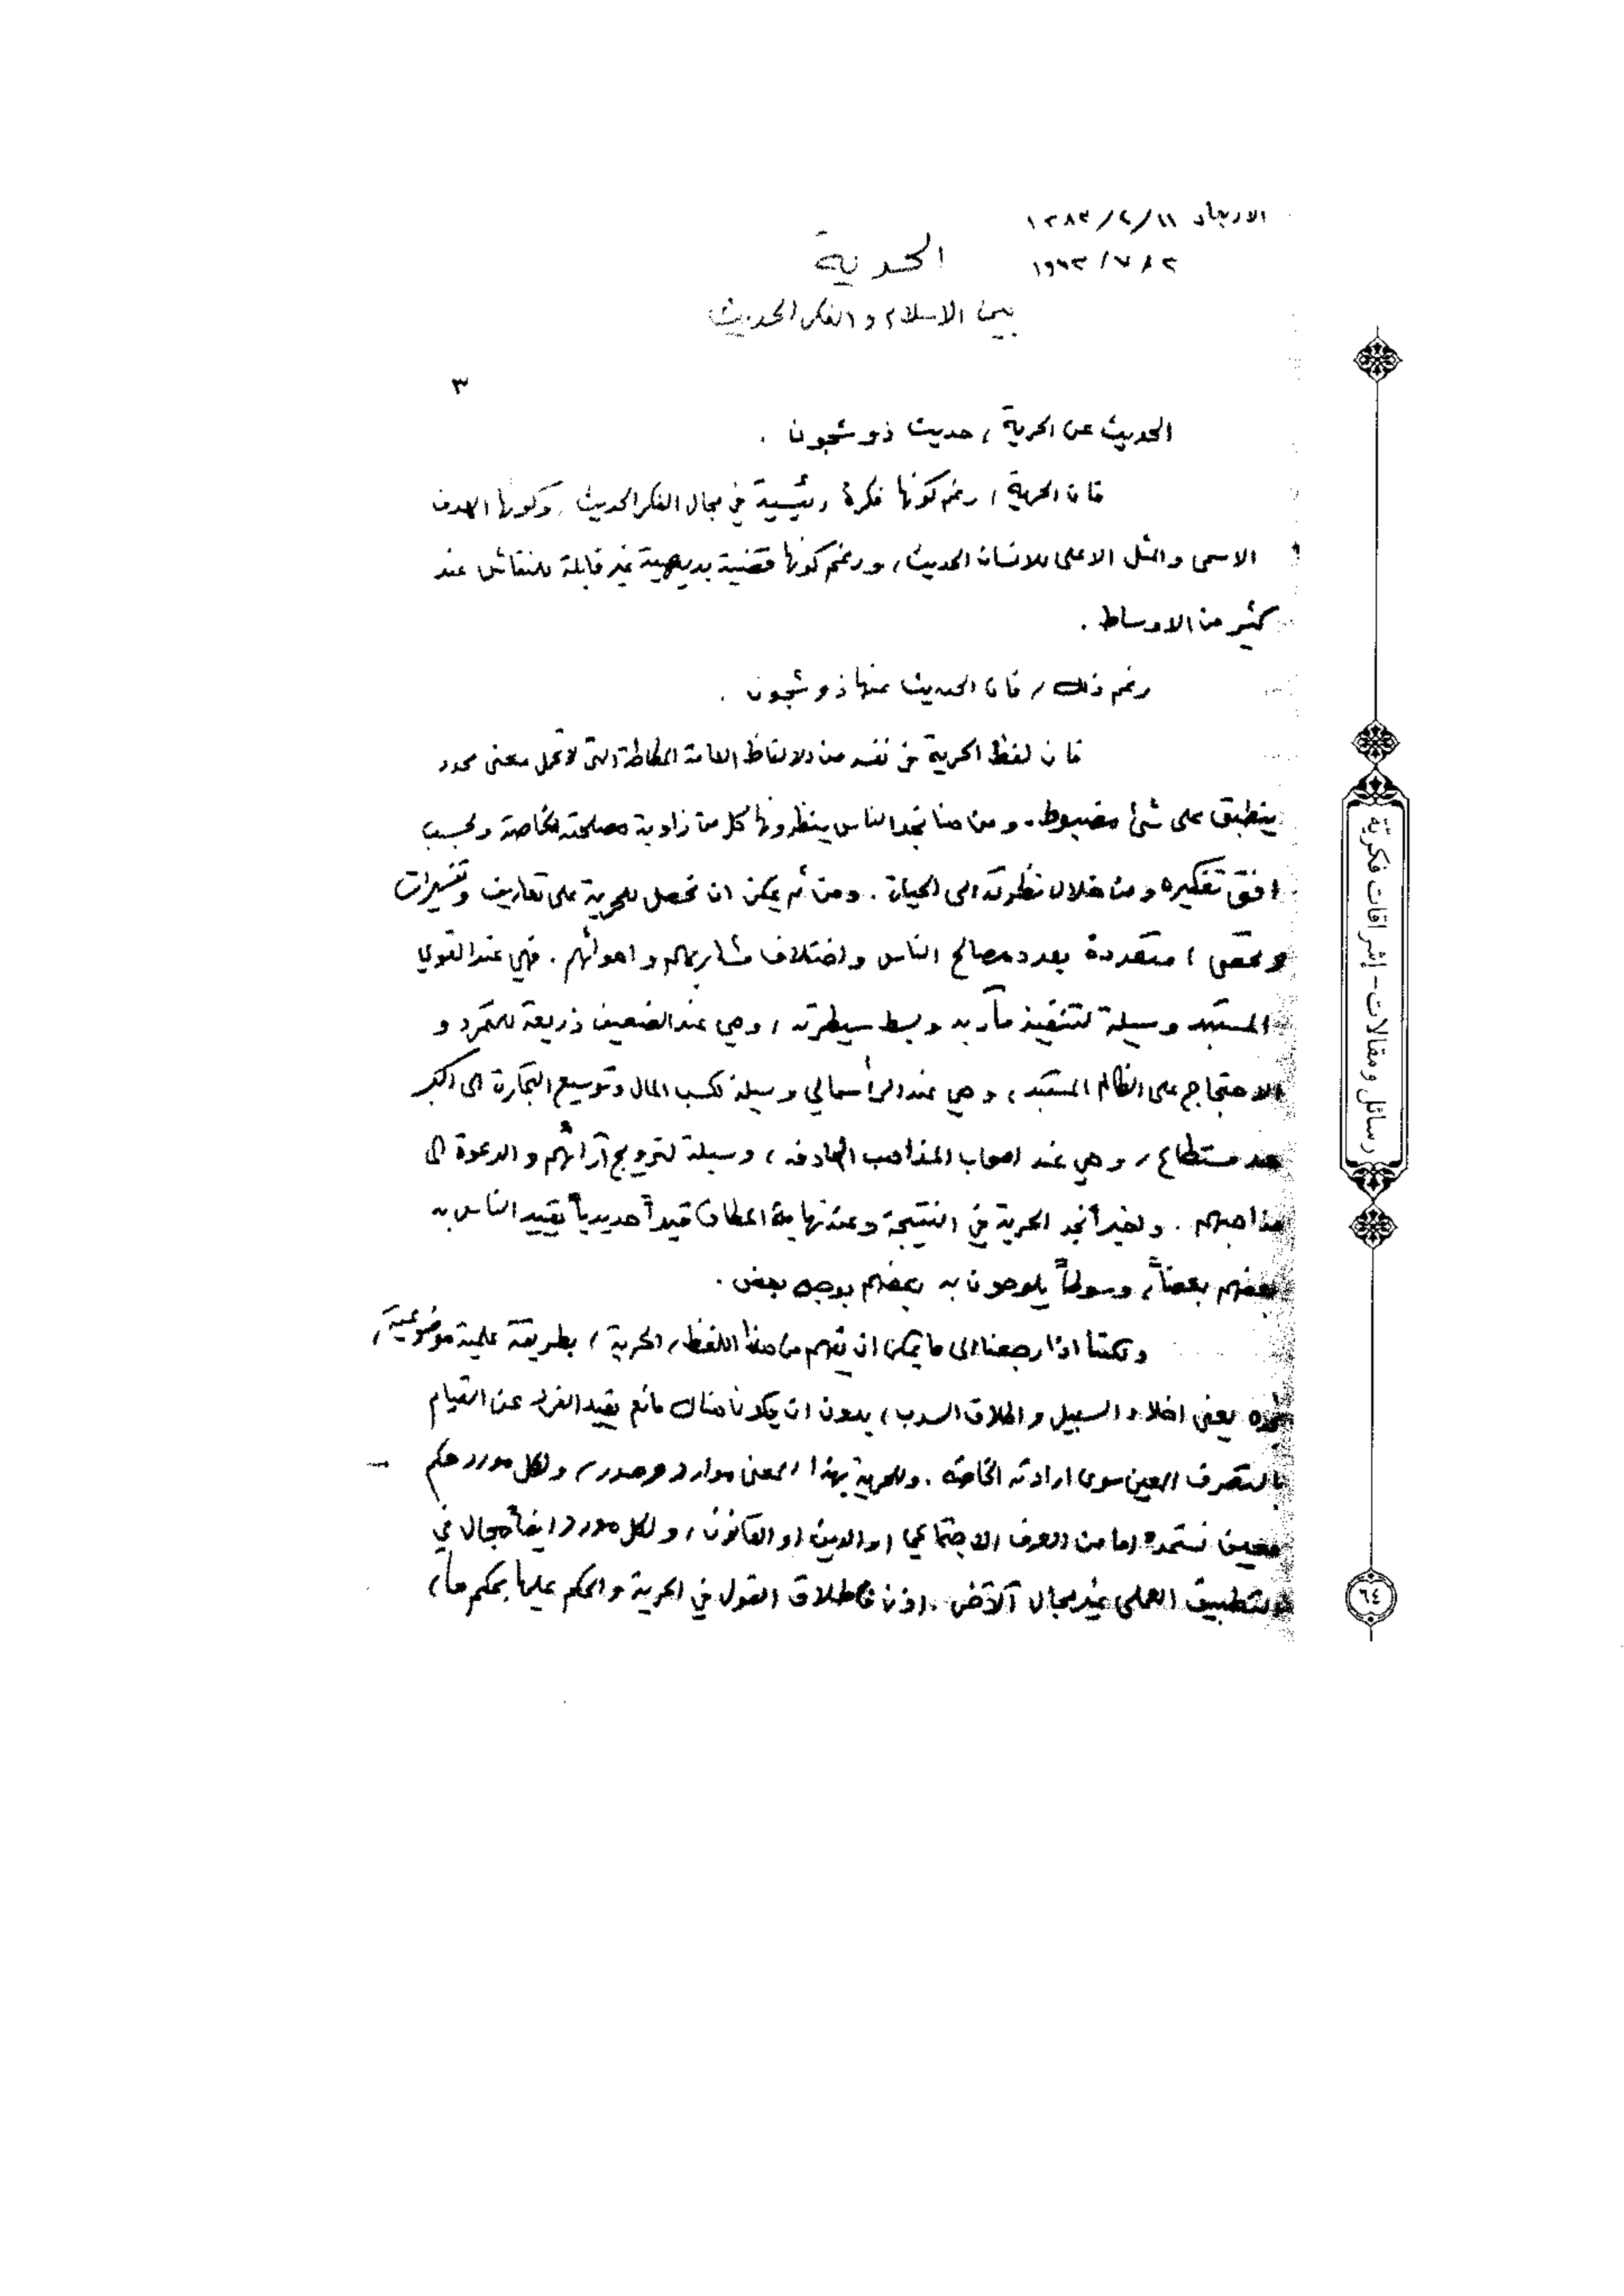 الاربعاء ١١/٢/١٣٨٣
٣/٧/١٩٦٣
الحرية
بين الاسلام والفكر الحديث
٣
الحديث عن الحرية، حديث ذو شجون.
فان الحرية، رغم كونها فكرة رئيسية في مجال الفكر الحديث، وكونها الهدف
الاسمى والمثل الاعلى للانسان الحديث، ورغم كونها قضية بديهية غير قابلة للنقاش عند
كثير من الاوساط.
رغم ذلك، فان الحديث عنها ذو شجون.
فان لفظ الحرية في نفسه من الالفاظ العامة المطاطة التي لا تحمل معنى محدد
ينطبق على شئ مضبوط. ومن هنا نجد الناس ينظرونها كل من زاوية مصلحته الخاصة وبحسب
افق تفكيره ومن خلال نظرته الى الحياة. ومن ثم يمكن ان نحصل للحرية على تعاريف وتفسيرات
متعددة بعدد مصالح الناس واختلاف مشاربهم واهوائهم. فهي عند القوي
المستبد وسيلة لتنفيذ مآربه وبسط سيطرته، وهي عند الضعيف ذريعة للتمرد و
الاحتجاج على الظالم المستبد، وهي عند الرأسمالي وسيلة لكسب المال وتوسيع التجارة الى اكبر
حد مستطاع، وهي عند اصحاب المذاهب الهادفه، وسيلة لترويج آرائهم والدعوة الى
مذاهبهم. واخيراً نجد الحرية في النتيجة وعند نهاية المطاف قيداً حديدياً يقيد الناس به
بعضهم بعضاً، وسوطاً يلوحون به بعضهم بوجه بعض.
ولكننا اذا رجعنا الى ما يمكن ان يفهم من هذا اللفظ، الحرية، بطريقة علمية موضوعية،
نجده يعني اخلاء السبيل واطلاق السرب، بدون ان يكون هناك مانع يقيد الفرد عن القيام
بالتصرف المعين سوى ارادته الخاصة. وللحرية بهذا المعنى موارد ومصدر، ولكل مورد حكم
معين نستمده اما من العرف الاجتماعي او الدين او القانون، ولكل مورد ايضاً مجال في
التطبيق العملي غير مجال الآخر. اذن فاطلاق القول في الحرية والحكم عليها بحكم ما،
رسائل ومقالات - إشراقات فكريّة
٦٤